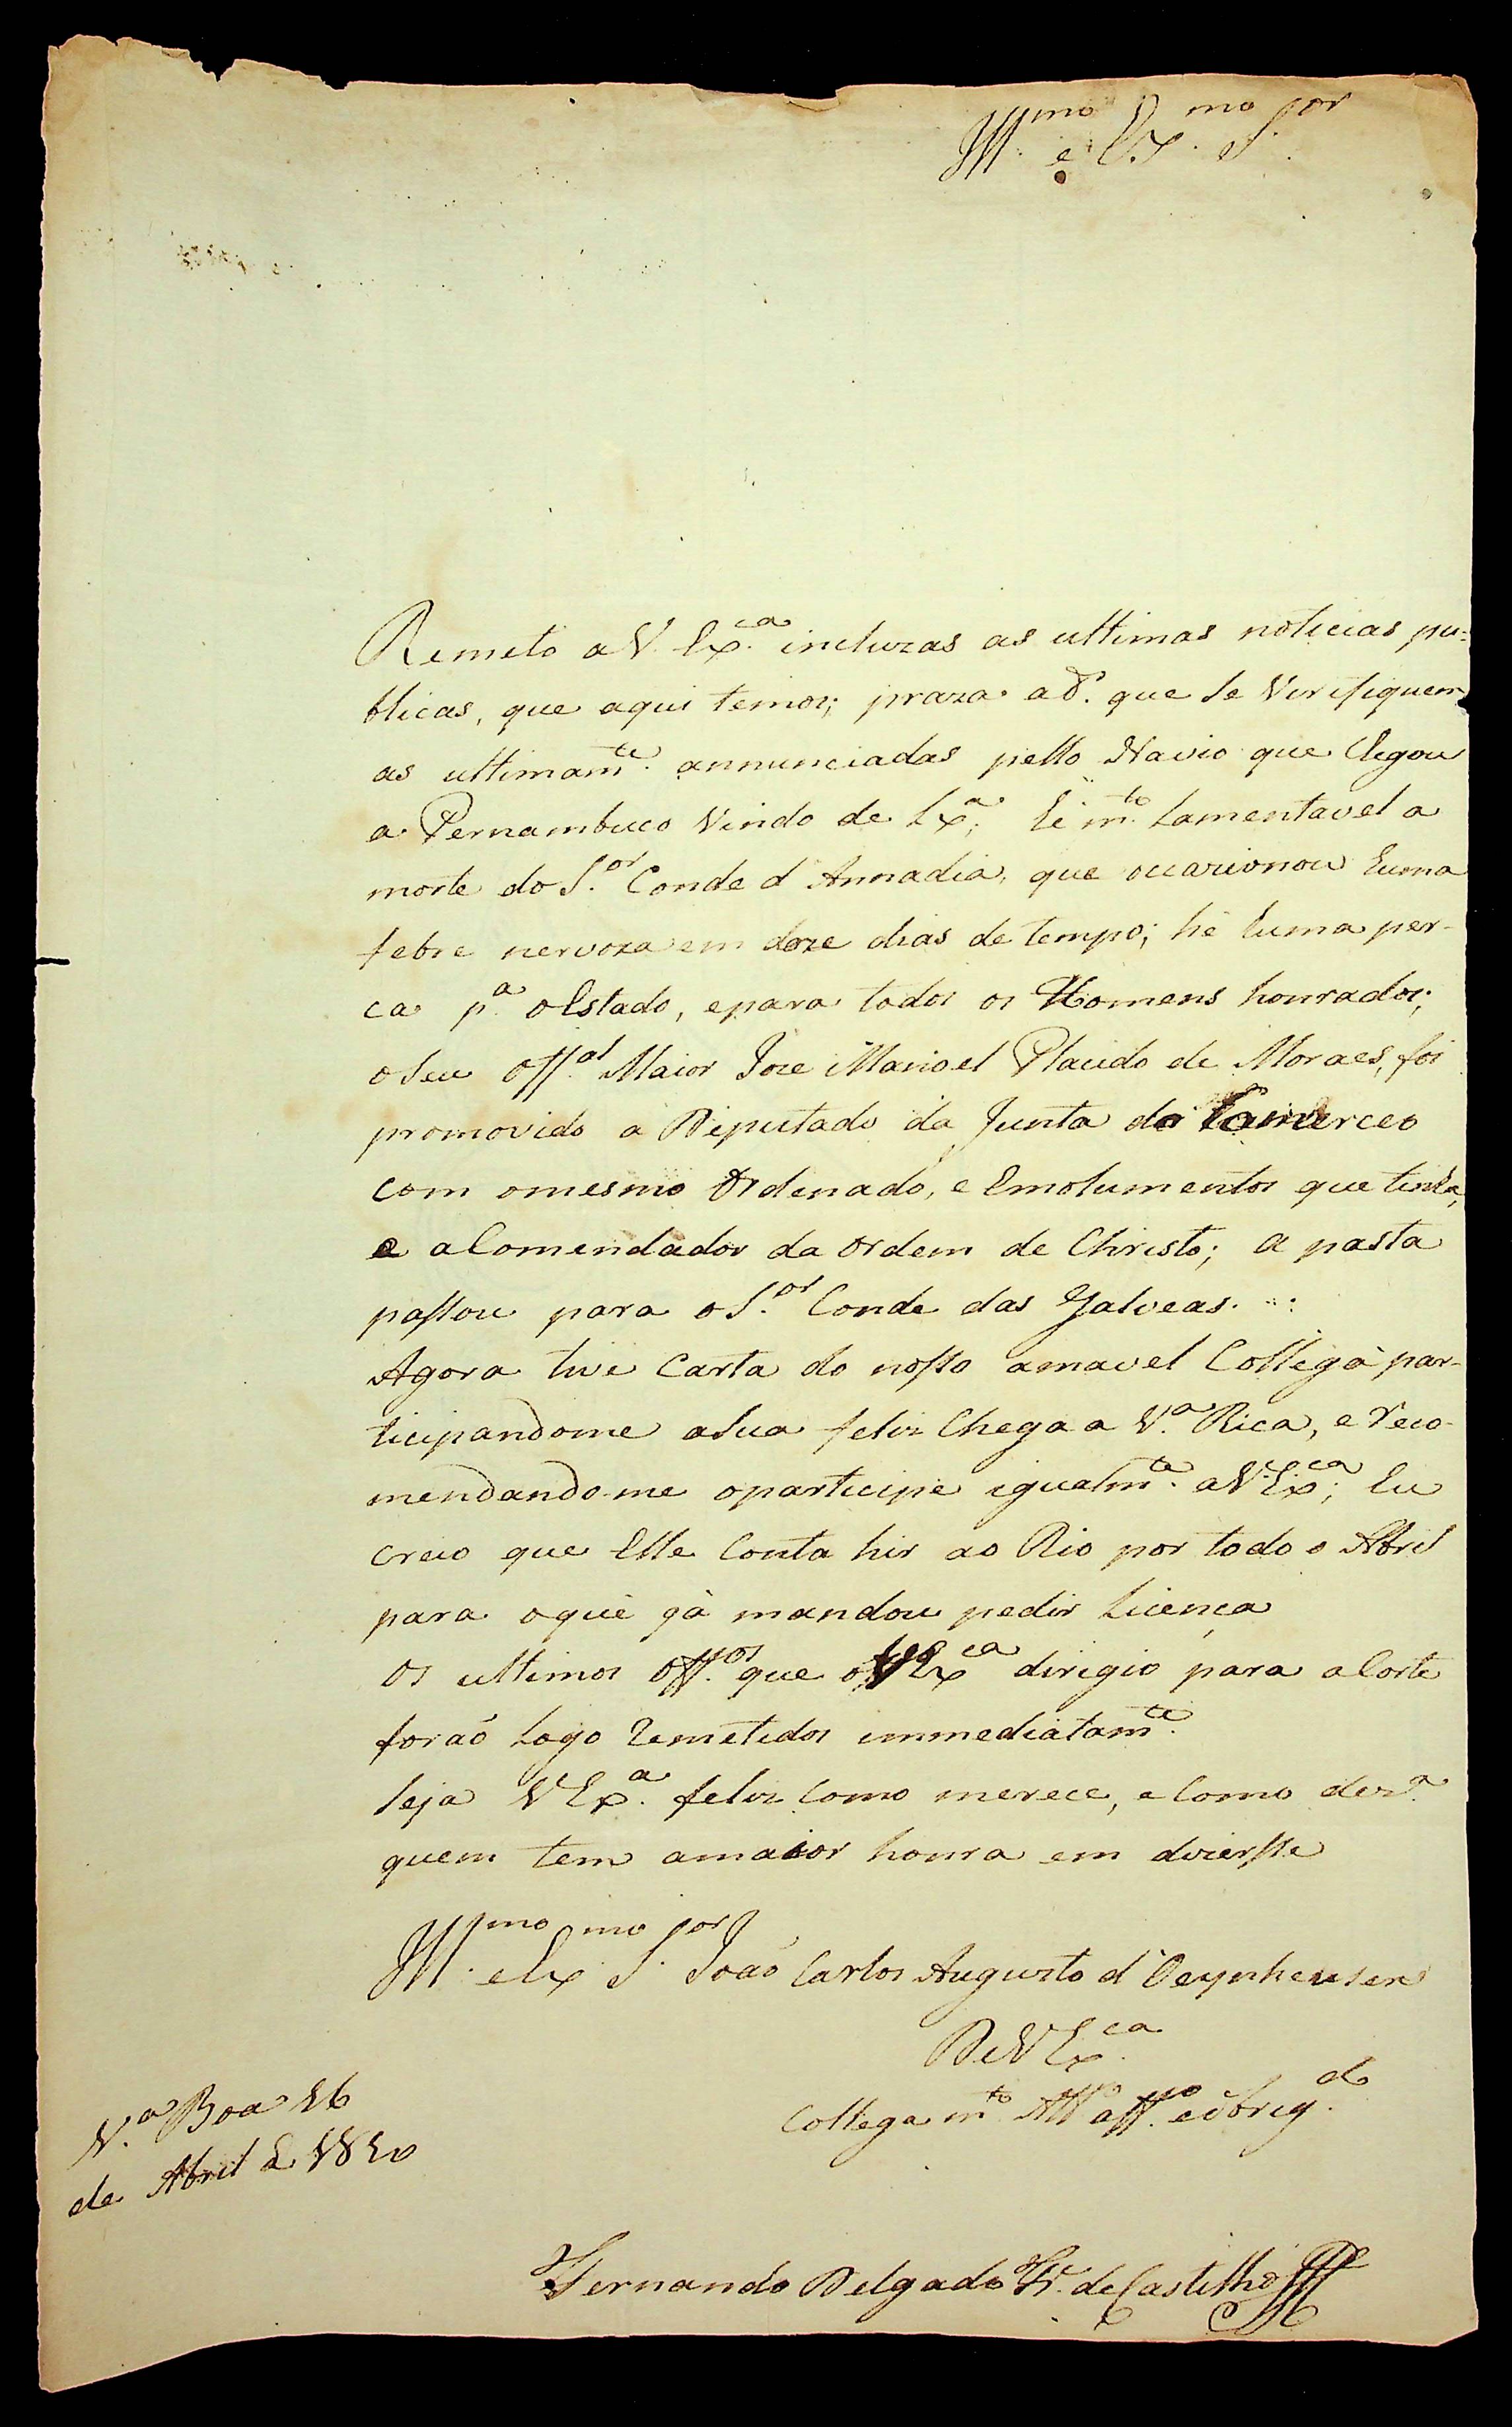 Ill.mo e Ex.mo S.or
Remeto a V. Ex.ca incluzas as ultimas noticias pu=
blicas, que aqui temos; praza a D.s que se Verifiquem
as ultimam.te annunciadas pello Navio que chegou
a Pernambuco Vindo de Lx.a; he m.to Lamentavel a
morte do S.or Conde d'Annadia, que occazionou huma
febre nervoza em doze dias de tempo; hé huma per-
ca p.a o Estado, e para todos os Homens honrados;
o seu Off.al Maior Joze Manoel Placido de Moraes, foi
promovido a Deputado da Junta do Comercio
com o mesmo Ordenado, e Emolumentos que tinha,
e a Comendador da Ordem de Christo; a pasta
passou para o S.or Conde das Galveas.
Agora tive Carta do nosso amavel Collega par-
ticipandome a sua feliz Chega a V.a Rica, e reco-
mendando-me o participe igualm.te a V. Ex.ca; Eu
creio que Elle Conta hir ao Rio por todo o Abril
para o que já mandou pedir Licença
Os ultimos Off.os que V Ex.ca dirigio para a Corte
foraõ Logo Remetidos immediatam.te
Seja V Ex.a feliz como merece, e como dez.a
quem tem a maior honra em dizersse
Ill.mo e Ex.mo S.or Joaõ Carlos Augusto d'Oeynhausen
De V Ex.ca
Collega m.to Att.o aff.o e obrig.do
V.a Boa 26
de Abril de 1810
Fernando Delgado Fr.e de Castilho